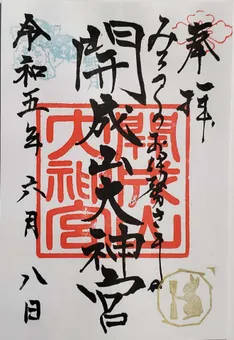 奉拝
みちのくのお伊勢さま
開成山大神宮
開成山大神宮
令和五年六月八日